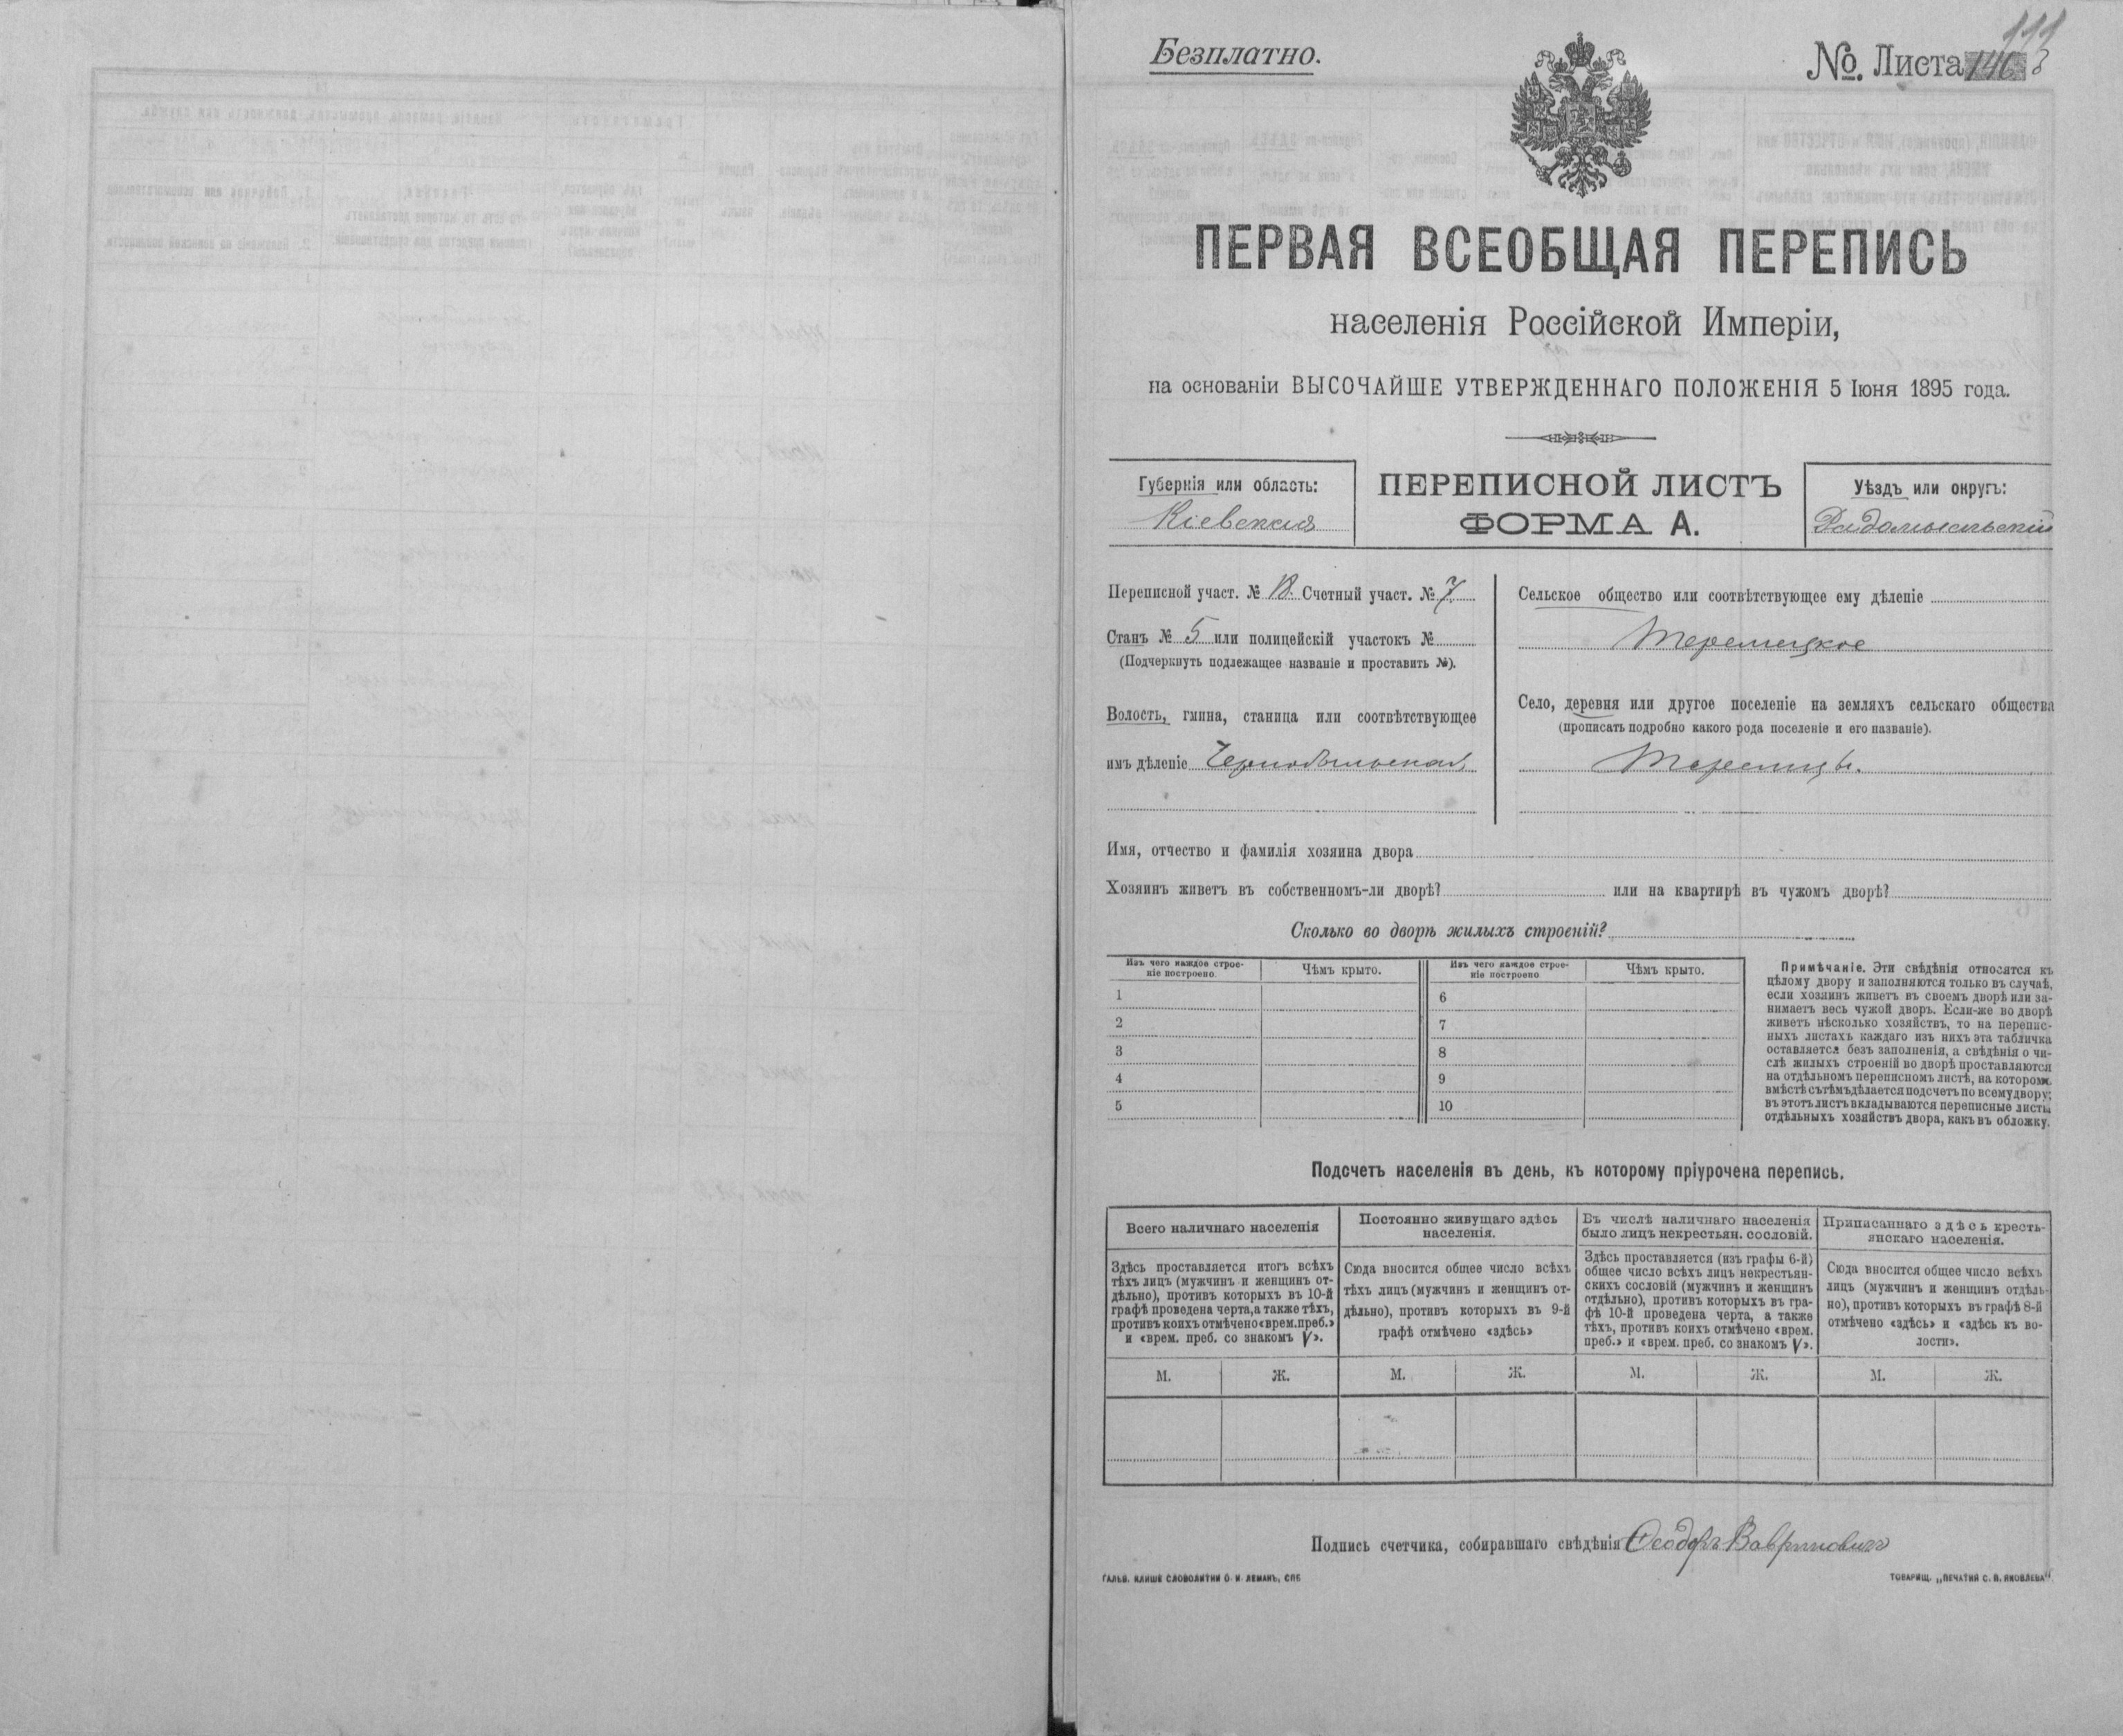 Безплатно.
№. Листа 146
111
ПЕРВАЯ ВСЕОБЩАЯ ПЕРЕПИСЬ
населенія Россійской Имперіи,
на основаніи ВЫСОЧАЙШЕ УТВЕРЖДЕННАГО ПОЛОЖЕНІЯ 5 Іюня 1895 года.
Губернія или область:
Кіевская
ПЕРЕПИСНОЙ ЛИСТЪ
ФОРМА А.
Уѣздъ или округъ:
Радомысльскій
Переписной участ. № 18. Счетный участ. № 7.
Станъ № 5 или полицейскій участокъ №
(Подчеркнуть подлежащее названіе и проставить №).
Волость, гмина, станица или соотвѣтствующее
имъ дѣленіе Чернобыльская
Сельское общество или соотвѣтствующее ему дѣленіе
Теремецкое
Село, деревня или другое поселеніе на земляхъ сельскаго общества
(прописать подробно какого рода поселеніе и его названіе).
Теремцы.
Имя, отчество и фамилія хозяина двора
Хозяинъ живетъ въ собственномъ-ли дворѣ? или на квартирѣ въ чужомъ дворѣ?
Сколько во дворѣ жилыхъ строеній?
Изъ чего каждое строе-
ніе построено.
Чѣмъ крыто.
Изъ чего каждое строе-
ніе построено
Чѣмъ крыто.
1
2
3
4
5
6
7
8
9
10
Примѣчаніе. Эти свѣдѣнія относятся къ
цѣлому двору и заполняются только въ случаѣ,
если хозяинъ живетъ въ своемъ дворѣ или за-
нимаетъ весь чужой дворъ. Если-же во дворѣ
живетъ нѣсколько хозяйствъ, то на перепис-
ныхъ листахъ каждаго изъ нихъ эта табличка
оставляется безъ заполненія, а свѣдѣнія о чи-
слѣ жилыхъ строеній во дворѣ проставляются
на отдѣльномъ переписномъ листѣ, на которомъ
вмѣстѣ съ тѣмъ дѣлается подсчетъ по всему двору;
въ этотъ листъ вкладываются переписные листы
отдѣльныхъ хозяйствъ двора, какъ въ обложку.
Подсчетъ населенія въ день, къ которому пріурочена перепись.
Всего наличнаго населенія
Здѣсь проставляется итогъ всѣхъ
тѣхъ лицъ (мужчинъ и женщинъ от-
дѣльно), противъ которыхъ въ 10-й
графѣ проведена черта, а также тѣхъ,
противъ коихъ отмѣчено «врем. преб.»
и «врем. преб. со знакомъ V».
Постоянно живущаго здѣсь
населенія.
Сюда вносится общее число всѣхъ
тѣхъ лицъ (мужчинъ и женщинъ от-
дѣльно), противъ которыхъ въ 9-й
графѣ отмѣчено «здѣсь»
Въ числѣ наличнаго населенія
было лицъ некрестьян. сословій.
Здѣсь проставляется (изъ графы 6-й)
общее число всѣхъ лицъ некрестьян-
скихъ сословій (мужчинъ и женщинъ
отдѣльно), противъ которыхъ въ гра-
фѣ 10-й проведена черта, а также
тѣхъ, противъ коихъ отмѣчено «врем.
преб.» и «врем. преб. со знакомъ V».
Приписаннаго здѣсь кресть-
янскаго населенія.
Сюда вносится общее число всѣхъ
лицъ (мужчинъ и женщинъ отдѣль-
но), противъ которыхъ въ графѣ 8-й
отмѣчено «здѣсь» и «здѣсь къ во-
лости».
М. Ж. М. Ж. М. Ж. М. Ж.
Подпись счетчика, собиравшаго свѣдѣнія Ѳеодоръ Вавриновичъ
ГАЛЬВ. КЛИШЕ СЛОВОЛИТНИ О. И. ЛЕМАНЪ, СПБ
ТОВАРИЩ. „ПЕЧАТНЯ С. П. ЯКОВЛЕВА".